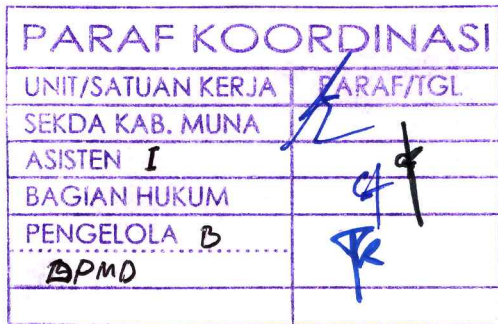 PARAF KOORDINASI
UNIT/SATUAN KERJA PARAF/TGL
SEKDA KAB. MUNA
ASISTEN I
BAGIAN HUKUM
PENGELOLA B
DPMD